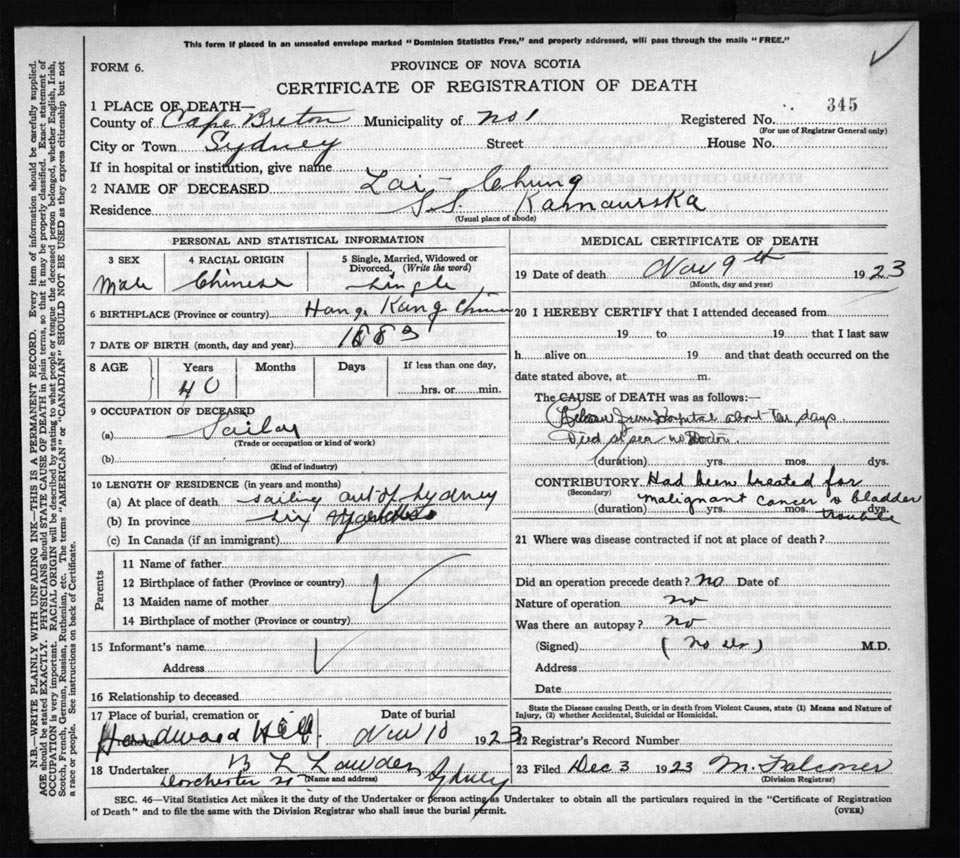 This form if placed in an unsealed envelope marked "Dominion Statistics Free," and properly addressed, will pass through the mails "FREE."
FORM 6.
PROVINCE OF NOVA SCOTIA
CERTIFICATE OF REGISTRATION OF DEATH
1 PLACE OF DEATH—
345
County of Cape Breton Municipality of No 1 Registered No.
(For use of Registrar General only)
City or Town Sydney Street House No.
If in hospital or institution, give name
2 NAME OF DECEASED Lai - Chung
Residence S.S. Kamourska
(Usual place of abode)
PERSONAL AND STATISTICAL INFORMATION
3 SEX 4 RACIAL ORIGIN 5 Single, Married, Widowed or
Divorced. (Write the word)
Male Chinese Single
6 BIRTHPLACE (Province or country) Hong Kong China
7 DATE OF BIRTH (month, day and year) 1883
8 AGE Years Months Days If less than one day,
40 hrs. or min.
9 OCCUPATION OF DECEASED
(a) Sailor
(Trade or occupation or kind of work)
(b)
(Kind of industry)
10 LENGTH OF RESIDENCE (in years and months)
(a) At place of death sailing out of Sydney
(b) In province six
(c) In Canada (if an immigrant)
Parents
11 Name of father
12 Birthplace of father (Province or country)
13 Maiden name of mother
14 Birthplace of mother (Province or country)
15 Informant's name
Address
16 Relationship to deceased
17 Place of burial, cremation or Date of burial
Hardwood Hill Nov 10 1923
18 Undertaker B L Lowden Sydney
Dorchester St (Name and address)
MEDICAL CERTIFICATE OF DEATH
19 Date of death Nov 9th 1923
(Month, day and year)
20 I HEREBY CERTIFY that I attended deceased from
19 to 19 that I last saw
h alive on 19 and that death occurred on the
date stated above, at m.
The CAUSE of DEATH was as follows:—
from Hospital about ten days
Died at sea no Doctor
(duration) yrs. mos. dys.
CONTRIBUTORY Had been treated for
(Secondary) malignant cancer & bladder
(duration) yrs. mos. dys. trouble
21 Where was disease contracted if not at place of death?
Did an operation precede death? no Date of
Nature of operation no
Was there an autopsy? no
(Signed) (no dr) M.D.
Address
Date
State the Disease causing Death, or in death from Violent Causes, state (1) Means and Nature of
Injury, (2) whether Accidental, Suicidal or Homicidal.
22 Registrar's Record Number
23 Filed Dec 3 1923 M. Falconer
(Division Registrar)
SEC. 46—Vital Statistics Act makes it the duty of the Undertaker or person acting as Undertaker to obtain all the particulars required in the "Certificate of Registration
of Death" and to file the same with the Division Registrar who shall issue the burial permit. (OVER)
N.B.—WRITE PLAINLY WITH UNFADING INK—THIS IS A PERMANENT RECORD. Every item of information should be carefully supplied.
AGE should be stated EXACTLY. PHYSICIANS should STATE CAUSE OF DEATH in plain terms, so that it may be properly classified. Exact statement of
OCCUPATION is very important. RACIAL ORIGIN will be described by stating to what people or tongue the deceased person belonged, whether English, Irish,
Scotch, French, German, Russian, Ruthenian, etc. The terms "AMERICAN" or "CANADIAN" SHOULD NOT BE USED as they express citizenship but not
a race or people. See instructions on back of Certificate.